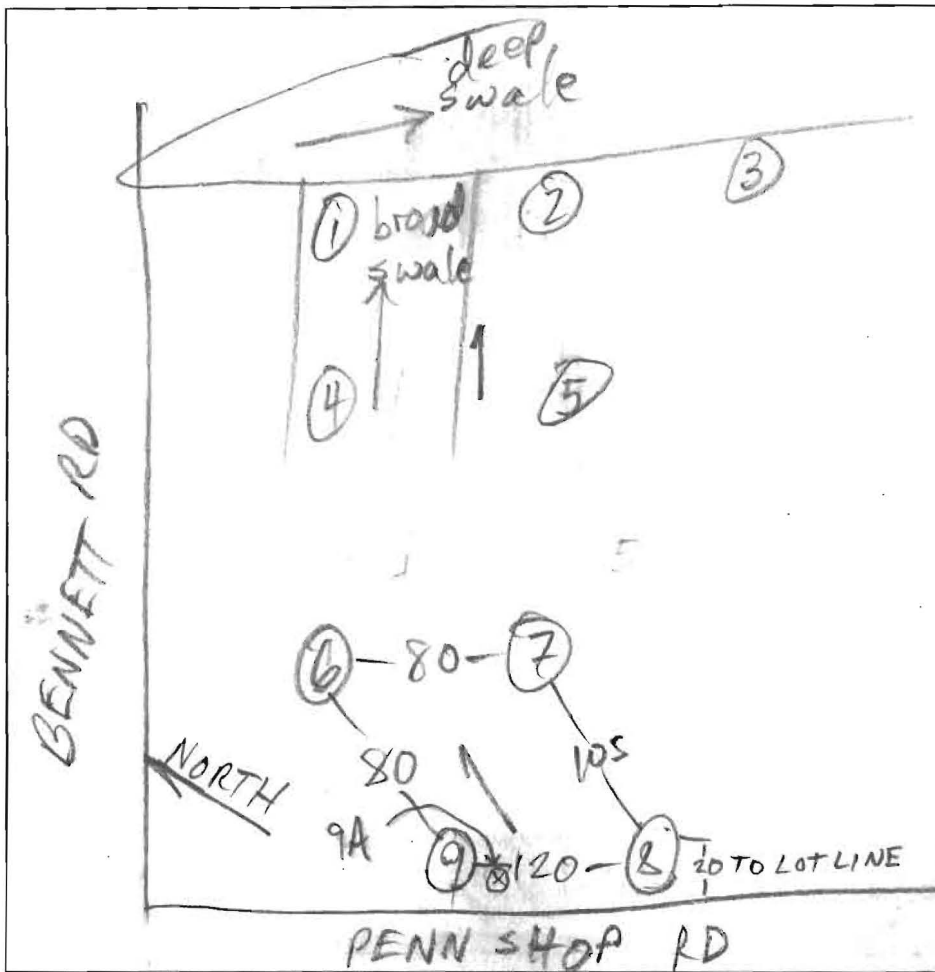 deep
swale
① broad
swale
②
③
④
⑤
BENNETT RD
⑥ 80 ⑦
80
105
NORTH
9A
⑨ 120 ⑧
20 TO LOT LINE
PENN SHOP RD